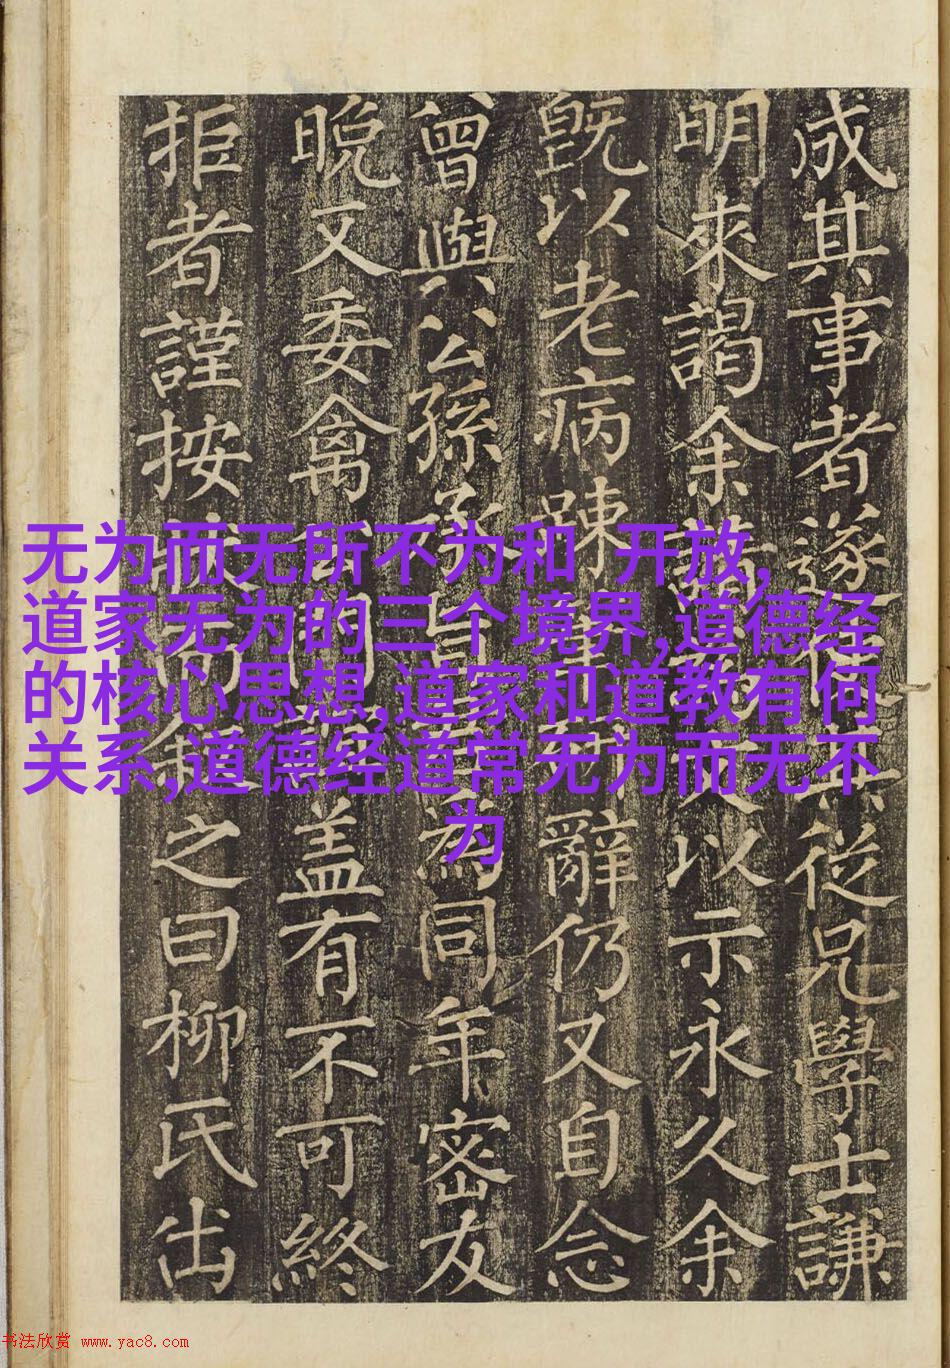 成其事者遂從兄學士謙
明來謁余以示永久余
既以老病踈辭仍又自念
曾與公孫為同年密友
晚又委禽盖有不可終
拒者謹按之曰柳氏出
无为而无所不为和 开放,
道家无为的三个境界,道德经
的核心思想,道家和道教有何
关系,道德经道常无为而无不
为
书法欣赏 www.yac8.com